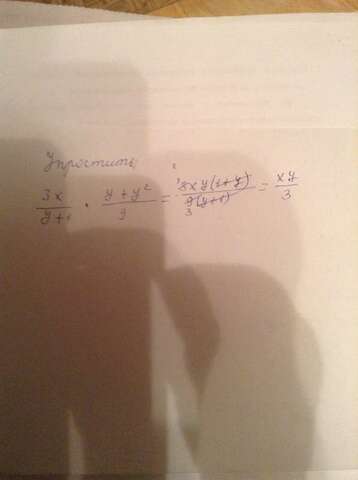 Упростить
3x/y+1 · y+y²/9 = 3xy(1+y)/9(y+1) = xy/3